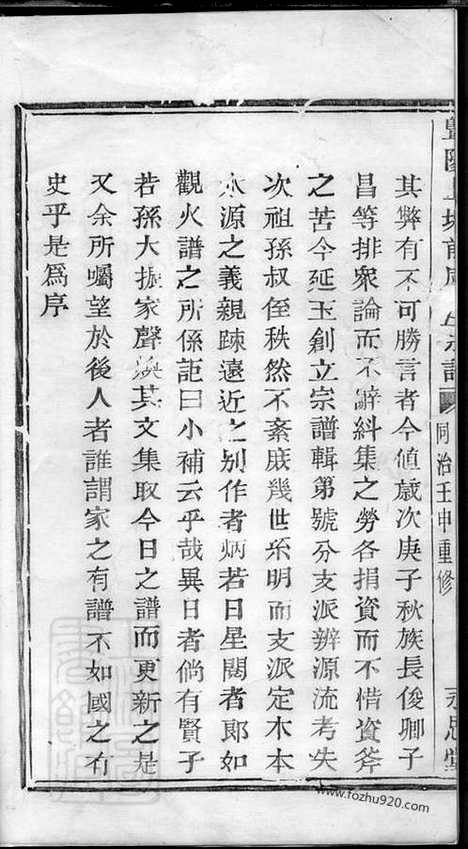 其弊有不可勝言者今值歲次庚子秋族長俊卿子
昌等排衆論而不辭糾集之勞各捐資而不惜資斧
之苦今延玉創立宗譜輯第號分支派辨源流考失
次祖孫叔侄秩然不紊庶幾世系明而支派定木本
水源之義親疎遠近之别作者炳若日星閱者郎如
觀火譜之所係詎曰小補云乎哉異日者倘有賢子
若孫大振家聲煥其文集取今日之譜而更新之是
又余所囑望於後人者誰謂家之有譜不如國之有
史乎是爲序
同治壬申重修
永思堂
www.fozhu920.com